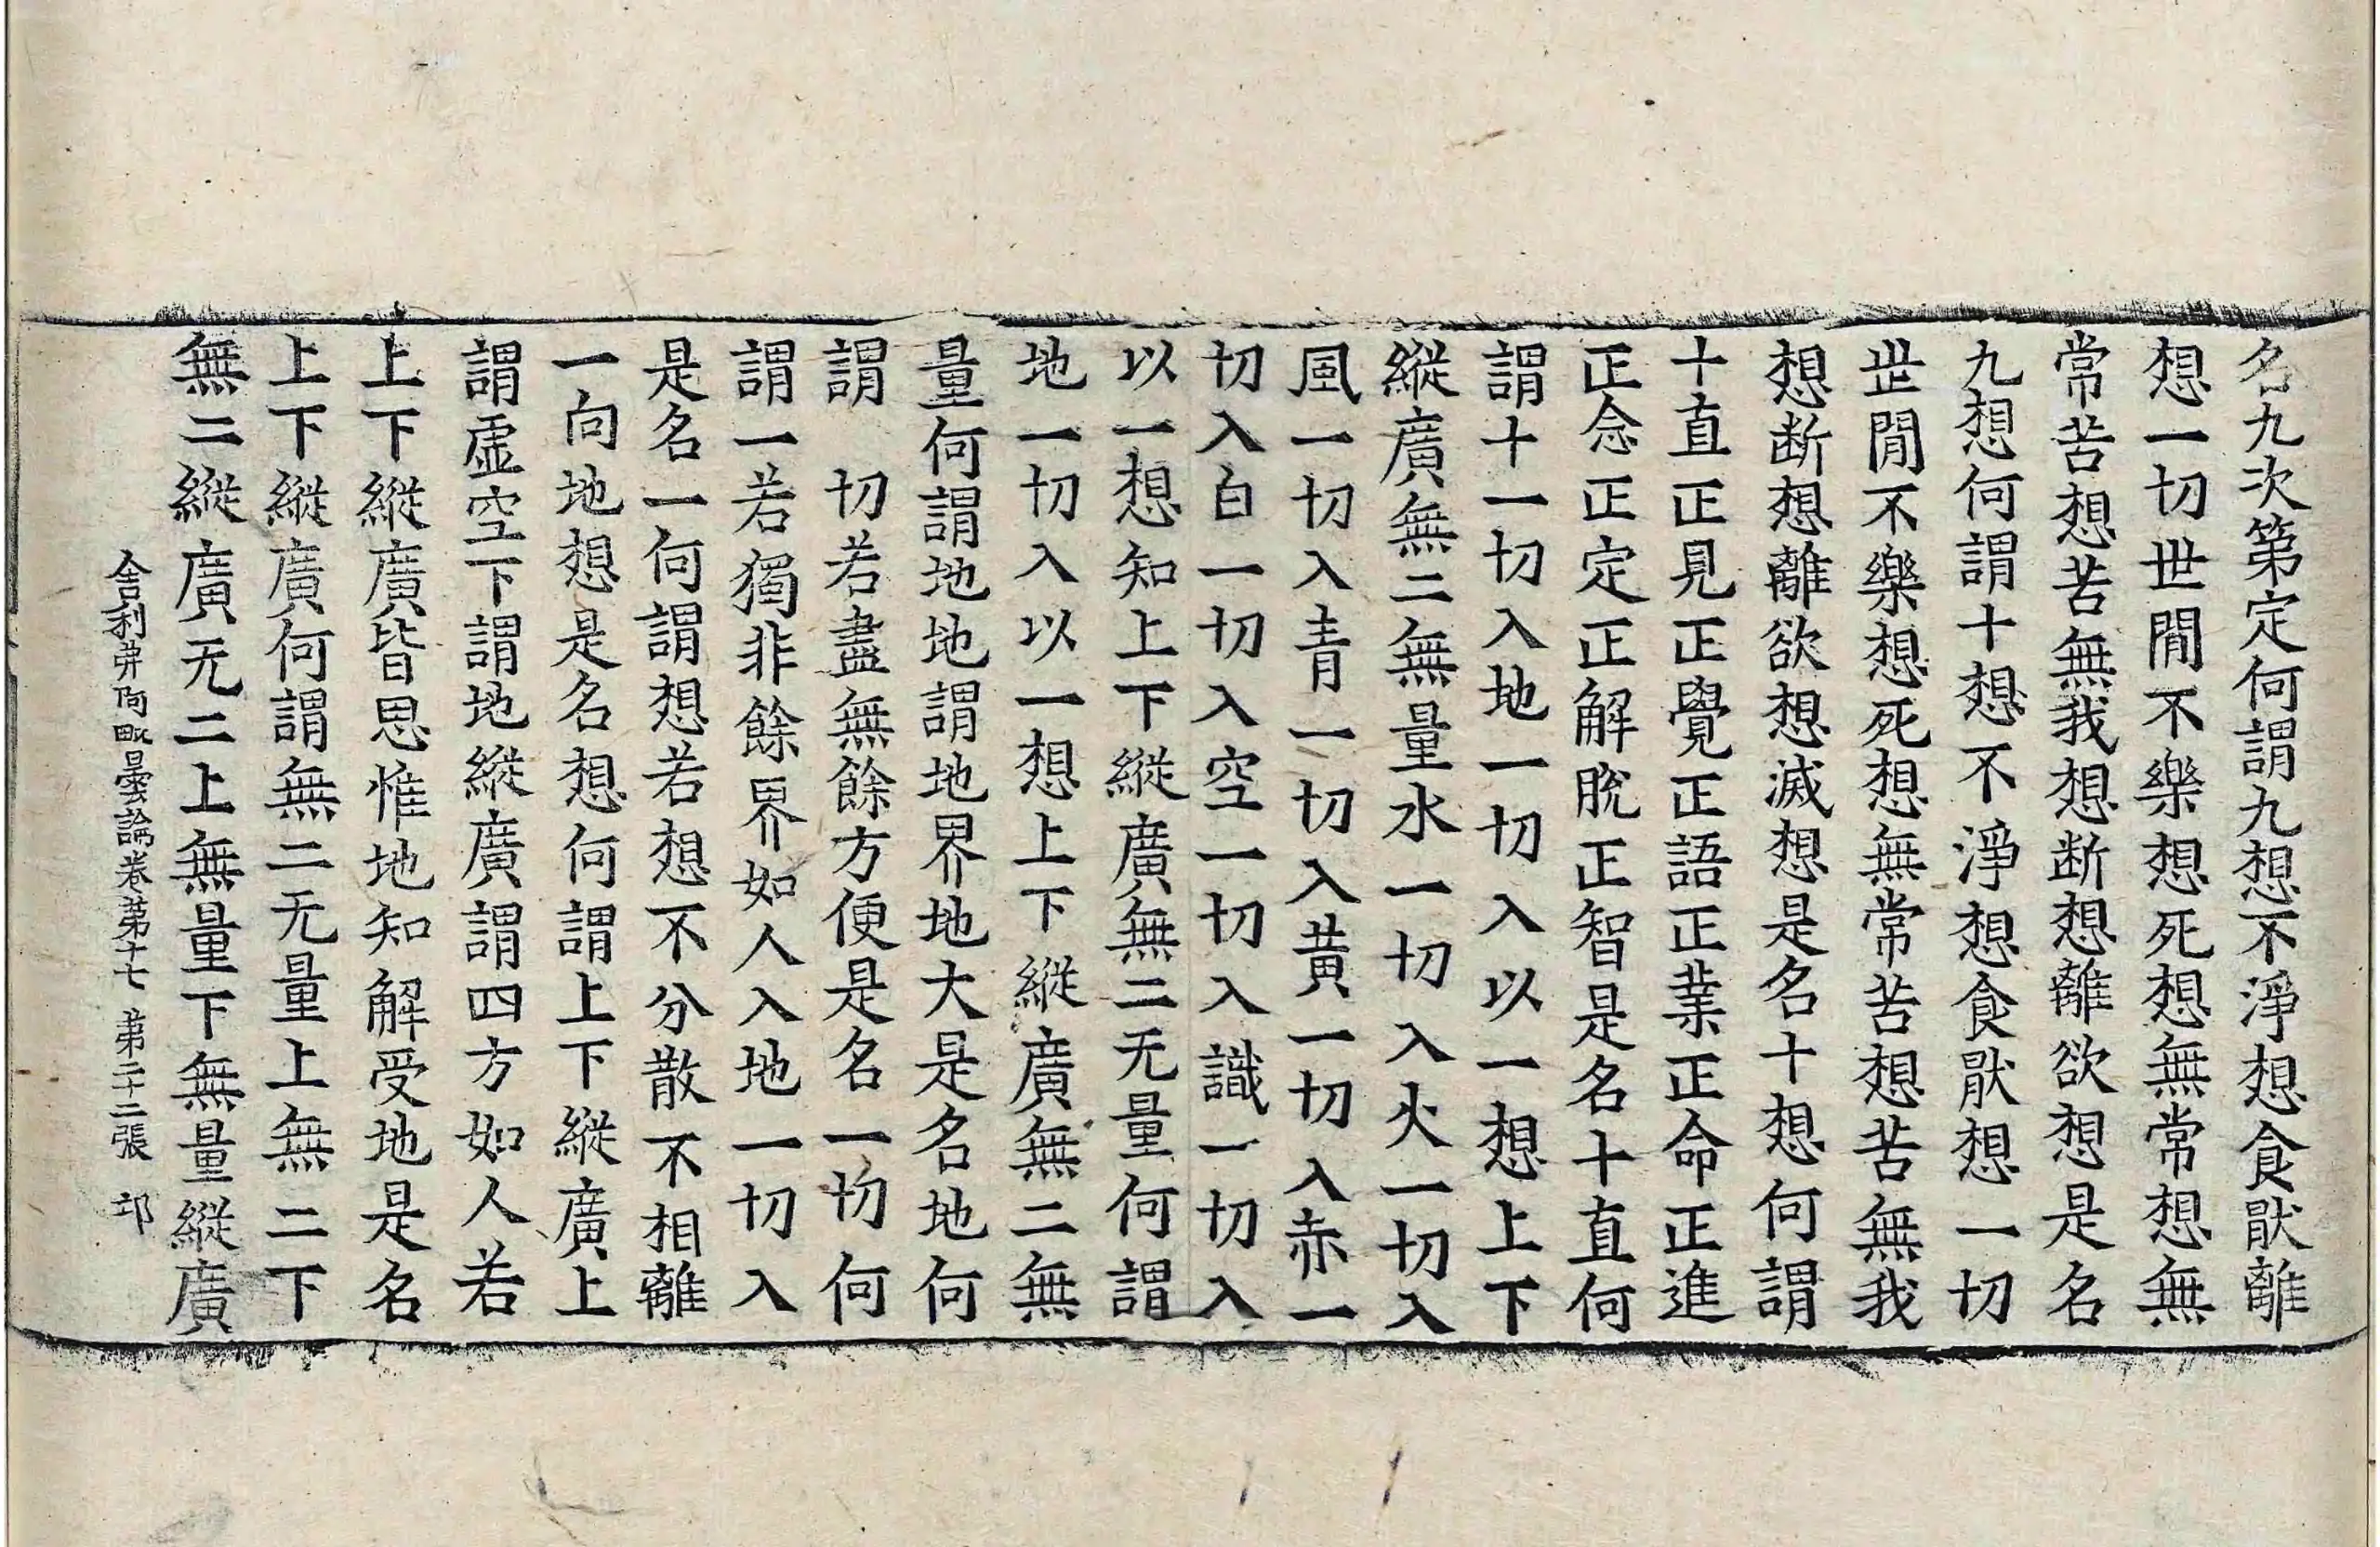 名九次第定何謂九想不淨想食猒離
想一切世閒不樂想死想無常想無
常苦想苦無我想断想離欲想是名
九想何謂十想不淨想食猒想一切
世閒不樂想死想無常苦想苦無我
想断想離欲想滅想是名十想何謂
十直正見正覺正語正業正命正進
正念正定正解脫正智是名十直何
謂十一切入地一切入以一想上下
縱廣無二無量水一切入火一切入
風一切入青一切入黃一切入赤一
切入白一切入空一切入識一切入
以一想知上下縱廣無二无量何謂
地一切入以一想上下縱廣無二無
量何謂地地謂地界地大是名地何
謂 切若盡無餘方便是名一切何
謂一若獨非餘界如人入地一切入
是名一何謂想若想不分散不相離
一向地想是名想何謂上下縱廣上
謂虛空下謂地縱廣謂四方如人若
上下縱廣皆思惟地知解受地是名
上下縱廣何謂無二无量上無二下
無二縱廣无二上無量下無量縱廣
舍利弗阿毗曇論卷苐十七 苐二十二張 卭